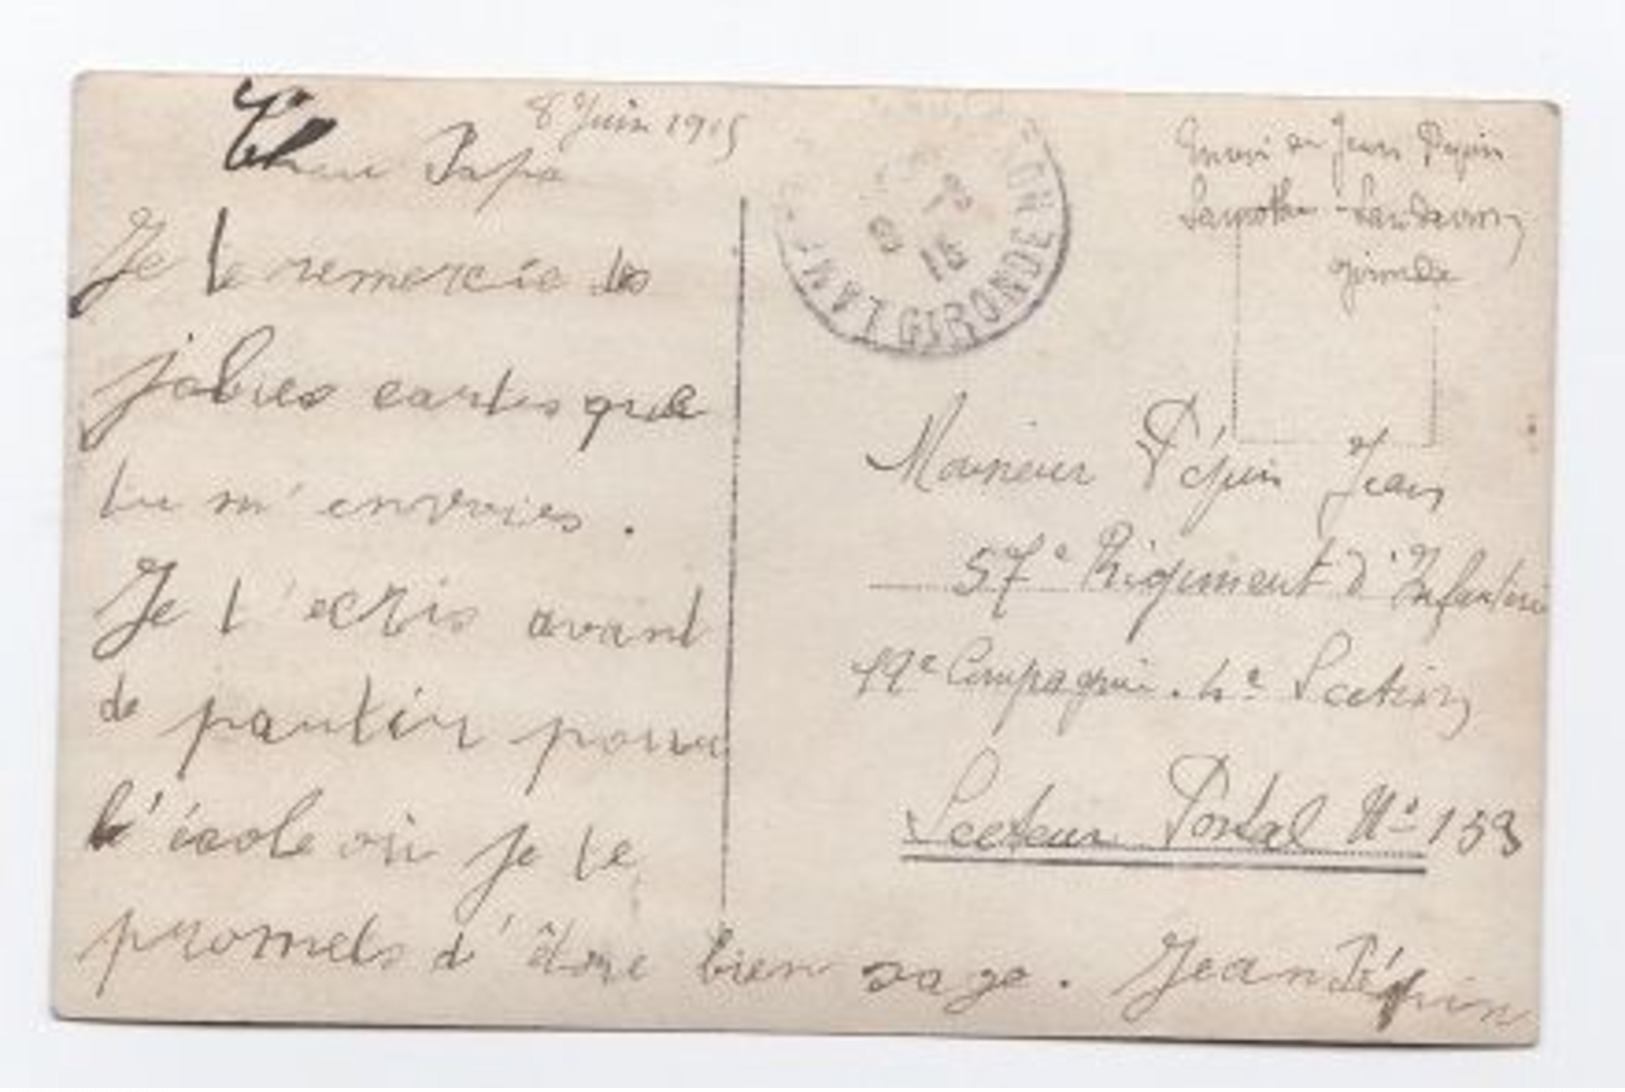 8 Juin 1915
Cher Papa
Je te remercie des
jolies cartes que
tu m'envoies.
Je t'ecris avant
de partir pour
l'école où je te
promets d'être bien sage. Jean Pépin
GIRONDE
15
Envoi de Jean Pépin
Lamothe-Landerron
Gironde
Monsieur Pépin Jean
57e Régiment d'Infanterie
19e Compagnie. 4e Section
Secteur Postal No 153